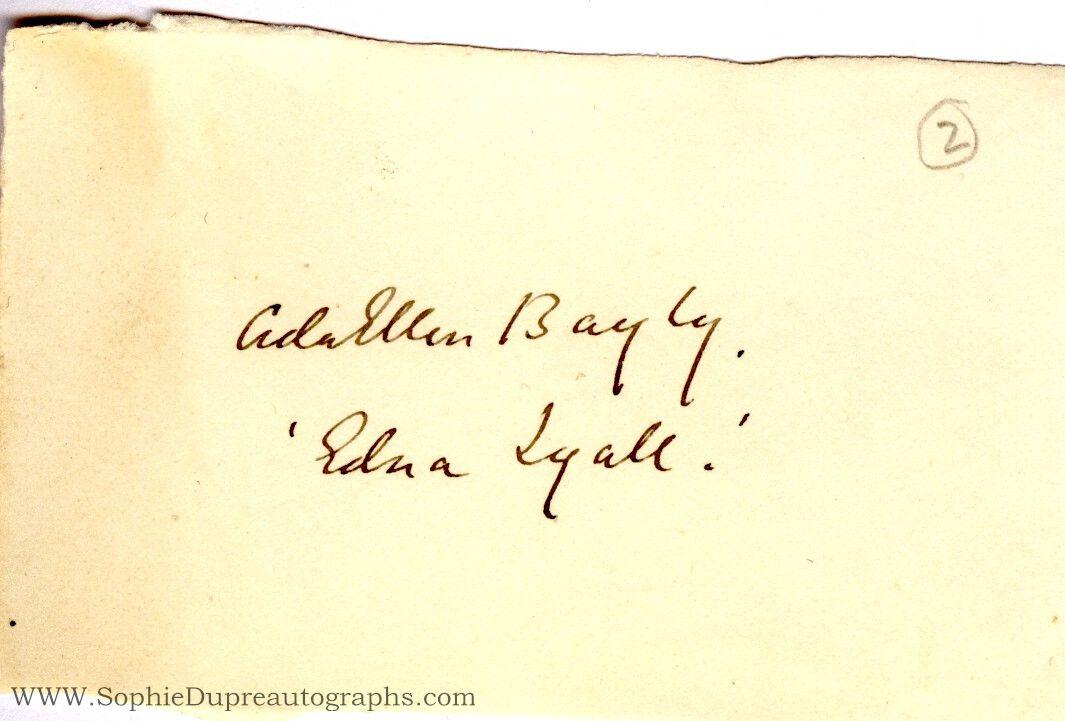 2
Ada Ellen Bayly.
'Edna Lyall.'
WWW.SophieDupreautographs.com